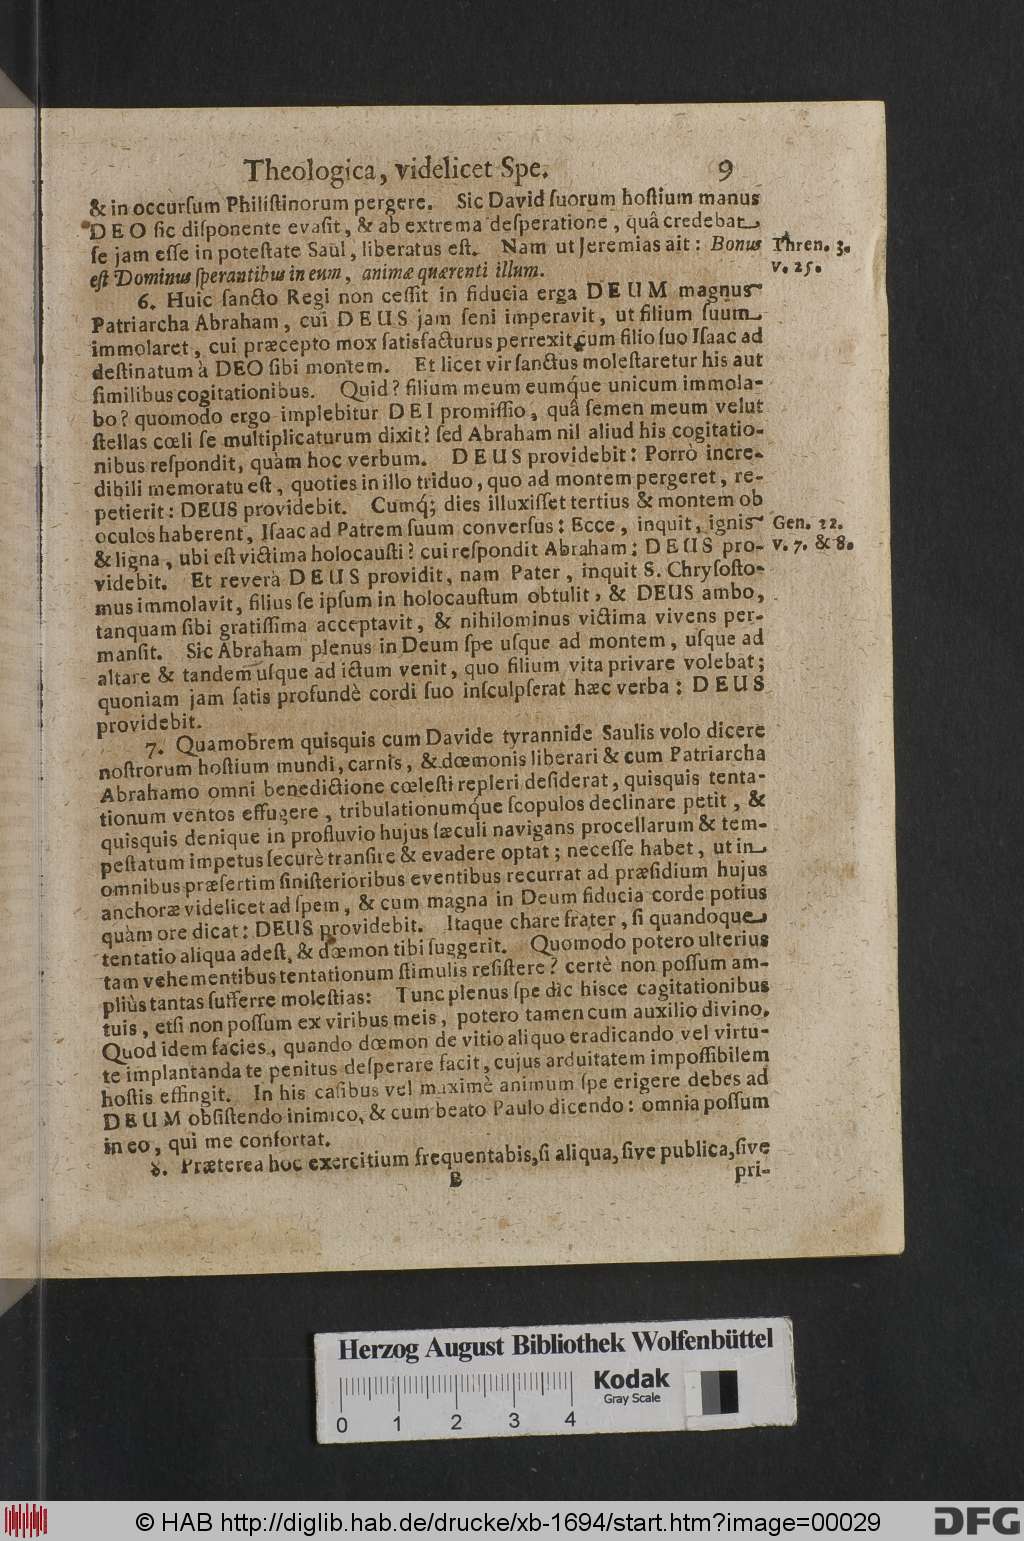 Theologica, videlicet Spe. 9
& in occurſum Philiſtinorum pergere. Sic David ſuorum hoſtium manus
DEO ſic diſponente evaſit, & ab extrema deſperatione, quâ credebat
ſe jam eſſe in poteſtate Saül, liberatus eſt. Nam ut Jeremias ait: Bonus
eſt Dominus ſperantibus in eum, animæ quærenti illum.
Thren. 3.
v. 25.
6. Huic ſancto Regi non ceſſit in fiducia erga DEUM magnus
Patriarcha Abraham, cui DEUS jam ſeni imperavit, ut filium ſuum
immolaret, cui præcepto mox ſatisfacturus perrexit cum filio ſuo Iſaac ad
deſtinatum à DEO ſibi montem. Et licet vir ſanctus moleſtaretur his aut
ſimilibus cogitationibus. Quid? filium meum eumq́ue unicum immola-
bo? quomodo ergo implebitur DEI promiſſio, quâ ſemen meum velut
ſtellas cœli ſe multiplicaturum dixit? ſed Abraham nil aliud his cogitatio-
nibus reſpondit, quàm hoc verbum. DEUS providebit: Porrò incre-
dibili memoratu eſt, quoties in illo triduo, quo ad montem pergeret, re-
petierit: DEUS providebit. Cumq́; dies illuxiſſet tertius & montem ob
oculos haberent, Iſaac ad Patrem ſuum converſus: Ecce, inquit, ignis
& ligna, ubi eſt victima holocauſti? cui reſpondit Abraham: DEUS pro-
Gen. 22.
v. 7. & 8.
videbit. Et reverà DEUS providit, nam Pater, inquit S. Chryſoſto-
mus immolavit, filius ſe ipſum in holocauſtum obtulit, & DEUS ambo,
tanquam ſibi gratiſſima acceptavit, & nihilominus victima vivens per-
manſit. Sic Abraham plenus in Deum ſpe uſque ad montem, uſque ad
altare & tandem uſque ad ictum venit, quo filium vita privare volebat;
quoniam jam ſatis profundè cordi ſuo inſculpſerat hæc verba: DEUS
providebit.
7. Quamobrem quisquis cum Davide tyrannide Saulis volo dicere
noſtrorum hoſtium mundi, carnis, & dœmonis liberari & cum Patriarcha
Abrahamo omni benedictione cœleſti repleri deſiderat, quisquis tenta-
tionum ventos effugere, tribulationumq́ue ſcopulos declinare petit, &
quisquis denique in profluvio hujus ſæculi navigans procellarum & tem-
peſtatum impetus ſecurè tranſire & evadere optat; neceſſe habet, ut in
omnibus præſertim ſiniſterioribus eventibus recurrat ad præſidium hujus
anchoræ videlicet ad ſpem, & cum magna in Deum fiducia corde potius
quàm ore dicat: DEUS providebit. Itaque chare frater, ſi quandoque
tentatio aliqua adeſt, & dœmon tibi ſuggerit. Quomodo potero ulterius
tam vehementibus tentationum ſtimulis reſiſtere? certè non poſſum am-
pliùs tantas ſufferre moleſtias: Tunc plenus ſpe dic hisce cagitationibus
tuis, etſi non poſſum ex viribus meis, potero tamen cum auxilio divino.
Quod idem facies, quando dœmon de vitio aliquo eradicando vel virtu-
te implantanda te penitus deſperare facit, cujus arduitatem impoſſibilem
hoſtis effingit. In his caſibus vel maximè animum ſpe erigere debes ad
DEUM obſiſtendo inimico, & cum beato Paulo dicendo: omnia poſſum
in eo, qui me confortat.
8. Præterea hoc exercitium frequentabis, ſi aliqua, ſive publica, ſive
B pri-
Herzog August Bibliothek Wolfenbüttel
Kodak
Gray Scale
0 1 2 3 4
© HAB http://diglib.hab.de/drucke/xb-1694/start.htm?image=00029
DFG